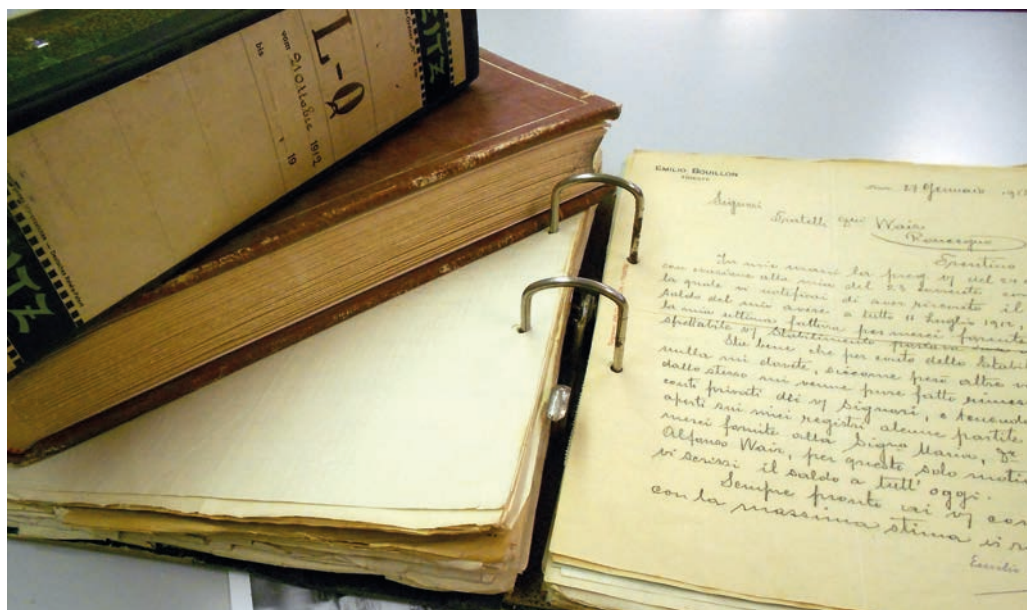 L-Q
vom 9 Ottobre 1912
bis 19
EMILIO BOUILLON
TRIESTE
27 Gennaio
Signori
Fratelli Wair
Roncegno
Trentino
In mie mani la preg. del
con evasione alla mia del 23
la quale vi notificai di aver ricevuto il
saldo del mio avere a tutto 11 luglio 1912,
la mia ultima fattura per merci fornite
spettabile Vs Stabilimento portava
Sta bene che per conto dello Stabil
nulla mi dovete, siccome però altre
dallo stesso mi venne pure fatto rimes
conti privati dei Vs Signori, e tenendo
aperti sui miei registri alcune partite
merci fornite alla Sigra Maria,
Alfonso Wair, per questo solo moti
vi scrissi il saldo a tutt' oggi.
Sempre pronto ai Vs co
con la massima stima vi
Emilio